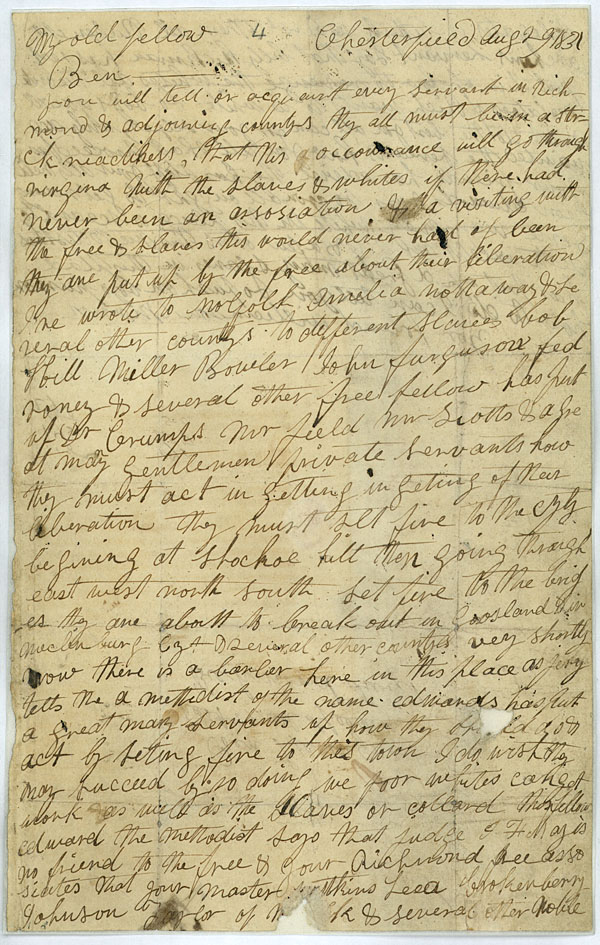 My old fellow 4 Chesterfield Aug 29 1831
Ben
you will tell or acquaint every servant in Rich-
mond & adjoining countys they all must be in a str-
ck readiness, that this occourance will go through
virgina with the slaves & whites if there had
never been an assosiation & a visiting with
the free & slaves this would never had of been
they are put up by the free about their liberation
I've wrote to Norfolk Amelia nottaway & se
veral other countys to different slaves bob
& bill Miller Bowler John furguson fed
roney & several other free fellow has put
up Dr Crumps Mr field Mr Scotts & a gre
at many gentlemen private servants how
they must act in getting in geting of their
liberation they must set fire to the cyty
begining at shockoe hill then going through
east west north south set fire to the brig
es they are about to break out in goosland & in
mecklenburg & several other countys very shortly
now there is a barber here in this place as fery
tells the a methodist of the name edwards has put
a great many servants up how they should go &
act by seting fire to this town I do wish they
may succeed by so doing we poor whites can get
work as well as the slaves or collard this fellow
edward the methodist says that judge
no friend to the free & your Richmond free asso
siates that your master Watkins Leea Brokenberry
Johnson Taylor of & several other noble